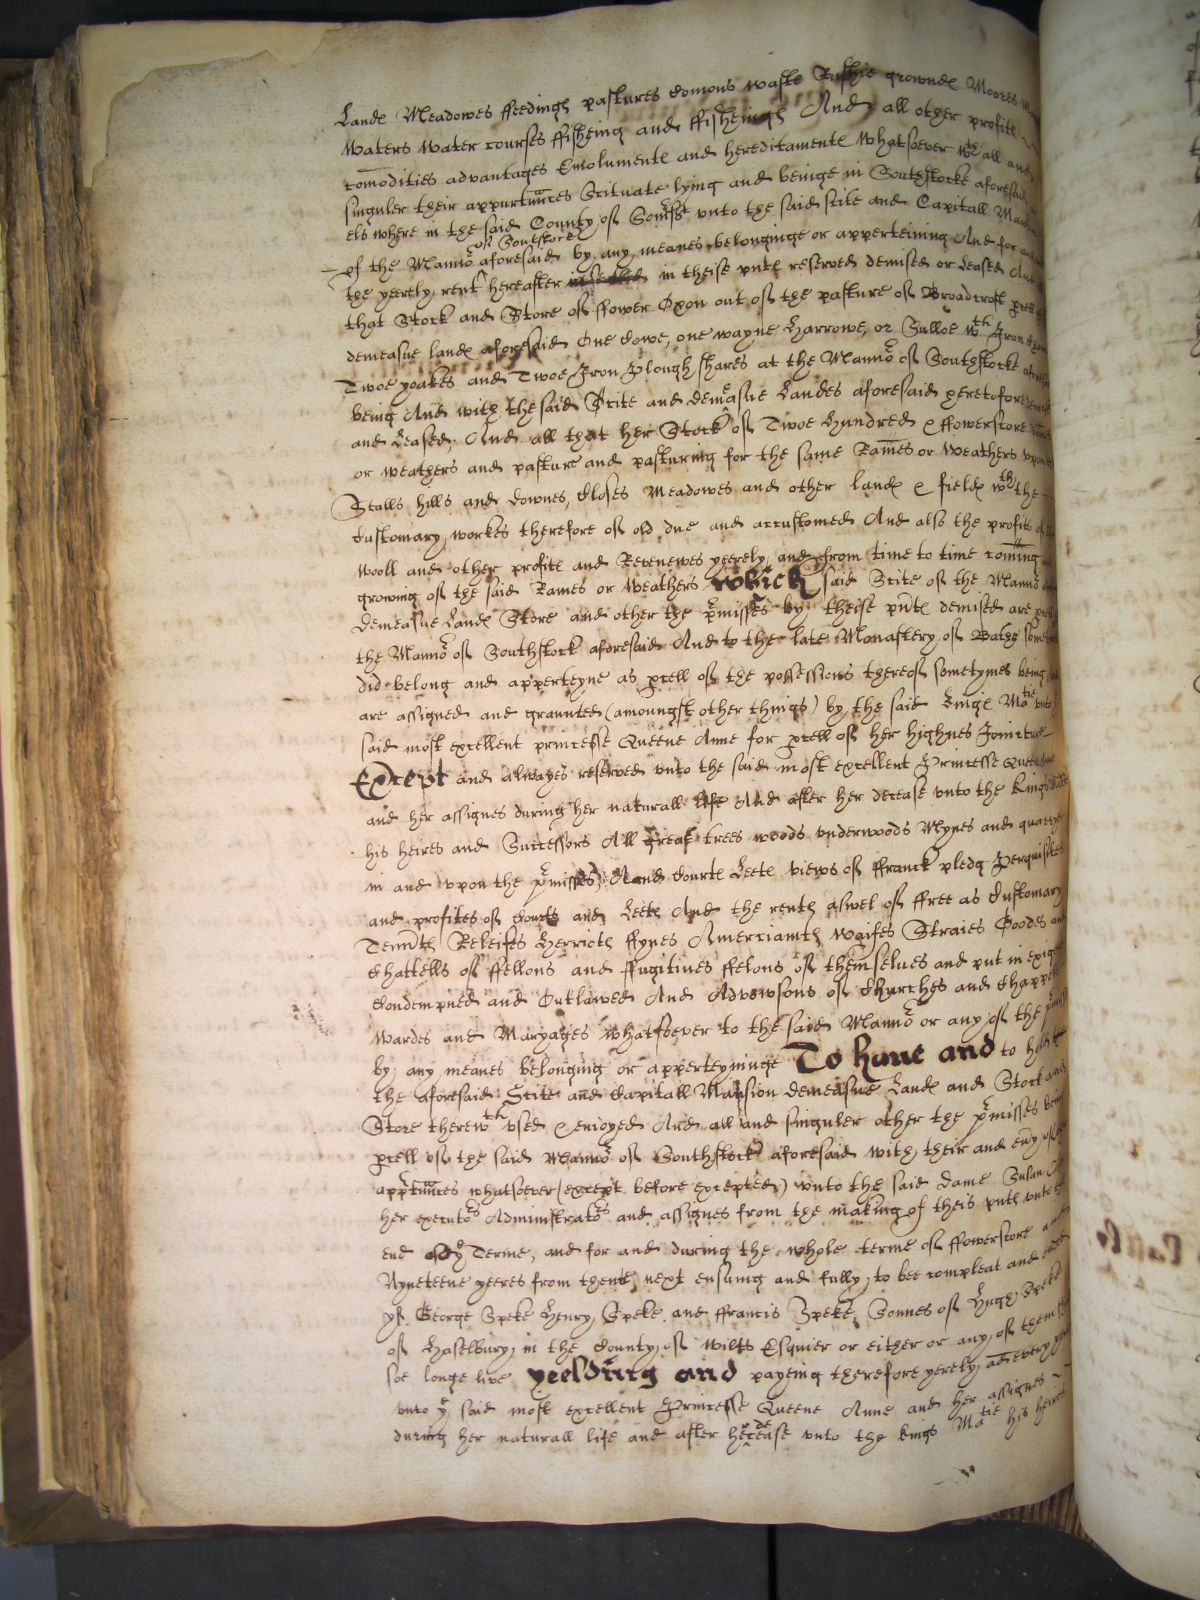 Landes Meadowes ffeedings pastures comons waste Rushie growndes Moores
Waters Water courses ffisheing and ffisheings And all other profitts
comodities advantages Emoluments and hereditaments whatsoever wth all and
singuler their appurtñnces Scituate lying and beinge in Southstocke aforesaid
els where in the said County of Somst vnto the said scite and Capitall
of Southstocke
of the Mannor aforesaid by any meanes belonginge or apperteining And for
the yeerely rent hereafter in theise pntes reserved demised or Leased And
that Stock and Store of ffower Oxon out of the pasture of Broadcroft
demeasne landes aforesaid One Cowe, one wayne Harrowe, or Sulloe wth Iron
Twoe yoakes and Twoe Iron Plough shares at the Mannor of Southstocke
being And with the said Scite and demeasne Landes aforesaid heretofore
and Leased, And all that her Stock of Twoe Hundred & ffowerstore
or weathers and pasture and pasturing for the same Rames or Weathers vpon
Stalls hills and downes, Closes Meadowes and other landes & fieldes wth the
Customary workes therefore of old due and accustomed And also the profits
wooll and other profitts and Revenewes yeerely and from time to time coming
growing of the said Rames or Weathers which said Scite of the Mannor
Demeasne Landes Store and other the pmisses by theise pntes demised are
the Mannor of Southstock aforesaid And to the late Monastery of Bathe
did belong and apperteyne as pcell of the possessions thereof sometymes being
are assigned and graunted (amoungst other things) by the said kings Matie vnto
said most excellent princesse Queene Anne for pcell of her highnes Joincture
Except and alwayes reserved vnto the said most excellent Princesse Queene
and her assignes during her naturall life And after her decease vnto the Kings
his heires and Successors All great trees woods vnderwoods Mynes and
in and vpon the pmisses, And Courtes Leetes views of ffranck pledg Perquisites
and profites of Courts and Leets And the rents aswel of ffree as Customary
Tennts Releifes Herriots ffynes Amerciamts Waifes Straies Goodes and
Chattells of ffellons and ffugitiues ffelons of themselues and put in
Condempned and Outlawed And Advowsons of Churches and
Wardes and Maryages whatsoever to the said Mannor or any of the
by any meanes belonging or apperteyninge To haue and to
the aforesaid Scite and Capitall Mansion demeasne Landes and Stock and
Store therewth vsed & enioyed And all and singuler other the pmisses
pcell of the said Mannor of Southstock aforesaid with their and
apptñnces whatsoever (except before excepted) vnto the said Dame Susan
her executors Administrators and assignes from the making of theis pnts vnto
end Terme, and for and during the whole terme of ffowerstore
Nyneteene yeeres from thence next ensuing and fully to bee compleat and
yf George Speke Henry Speke and ffrancis Speke, Sonnes of Hugh Speke
of Haselbury in the County of Wilts Esquier or either or any of them
soe longe live yeelding and payeing therefore yerely and every
vnto ye said most excellent Princesse Queene Anne and her assignes
during her naturall life and after her decease vnto the kings Matie his heires